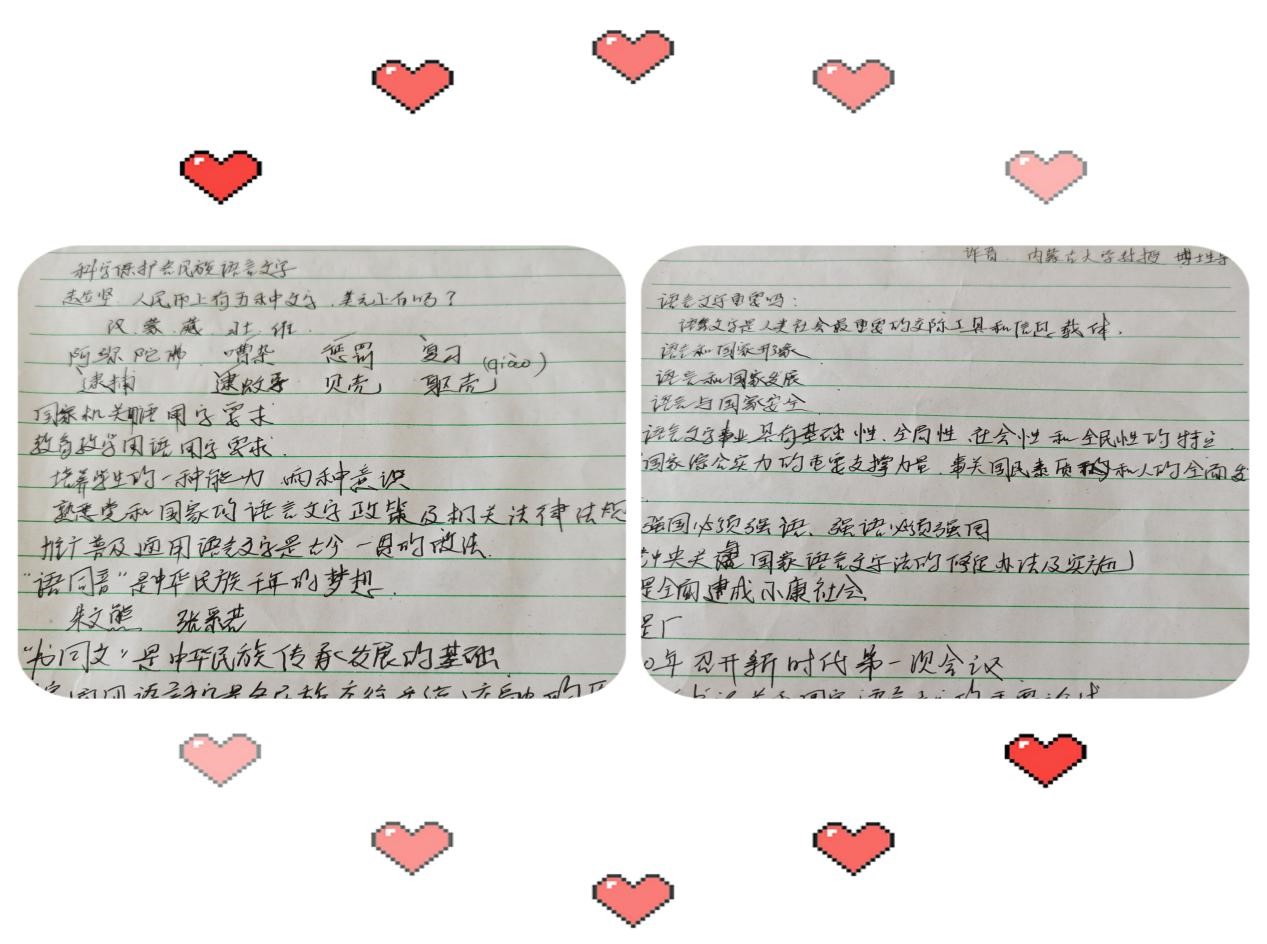 科学保护各民族语言文字
人民币上有五种文字,美元上有吗?
汉.蒙.藏.壮.维.
阿弥陀佛 嘈杂 惩罚 复习
(qiào)
逮捕 逮蚊子 贝壳 躯壳
国家机关用语用字要求
教育教学用语用字要求.
培养学生的一种能力 两种意识
熟悉党和国家的语言文字政策及相关法律法规
推广普及通用语言文字是古今一贯的做法.
"语同音"是中华民族千年的梦想.
朱文熊 张
"书同文"是中华民族传承发展的基础
内蒙古大学教授 博士生导
语言文字重要吗:
语言文字是人类社会最重要的交际工具和信息载体.
语言和国家形象
语言和国家发展
语言与国家安全
语言文字事业具有基础性、全局性、社会性和全民性的特点
国家综合实力的重要支撑力量,事关国民素质和人的全面发
强国必须强语、强语必须强国
中央关 国家语言文字法的 办法及实施)
是全面建成小康社会
是厂
0年召开新时代第一次会议